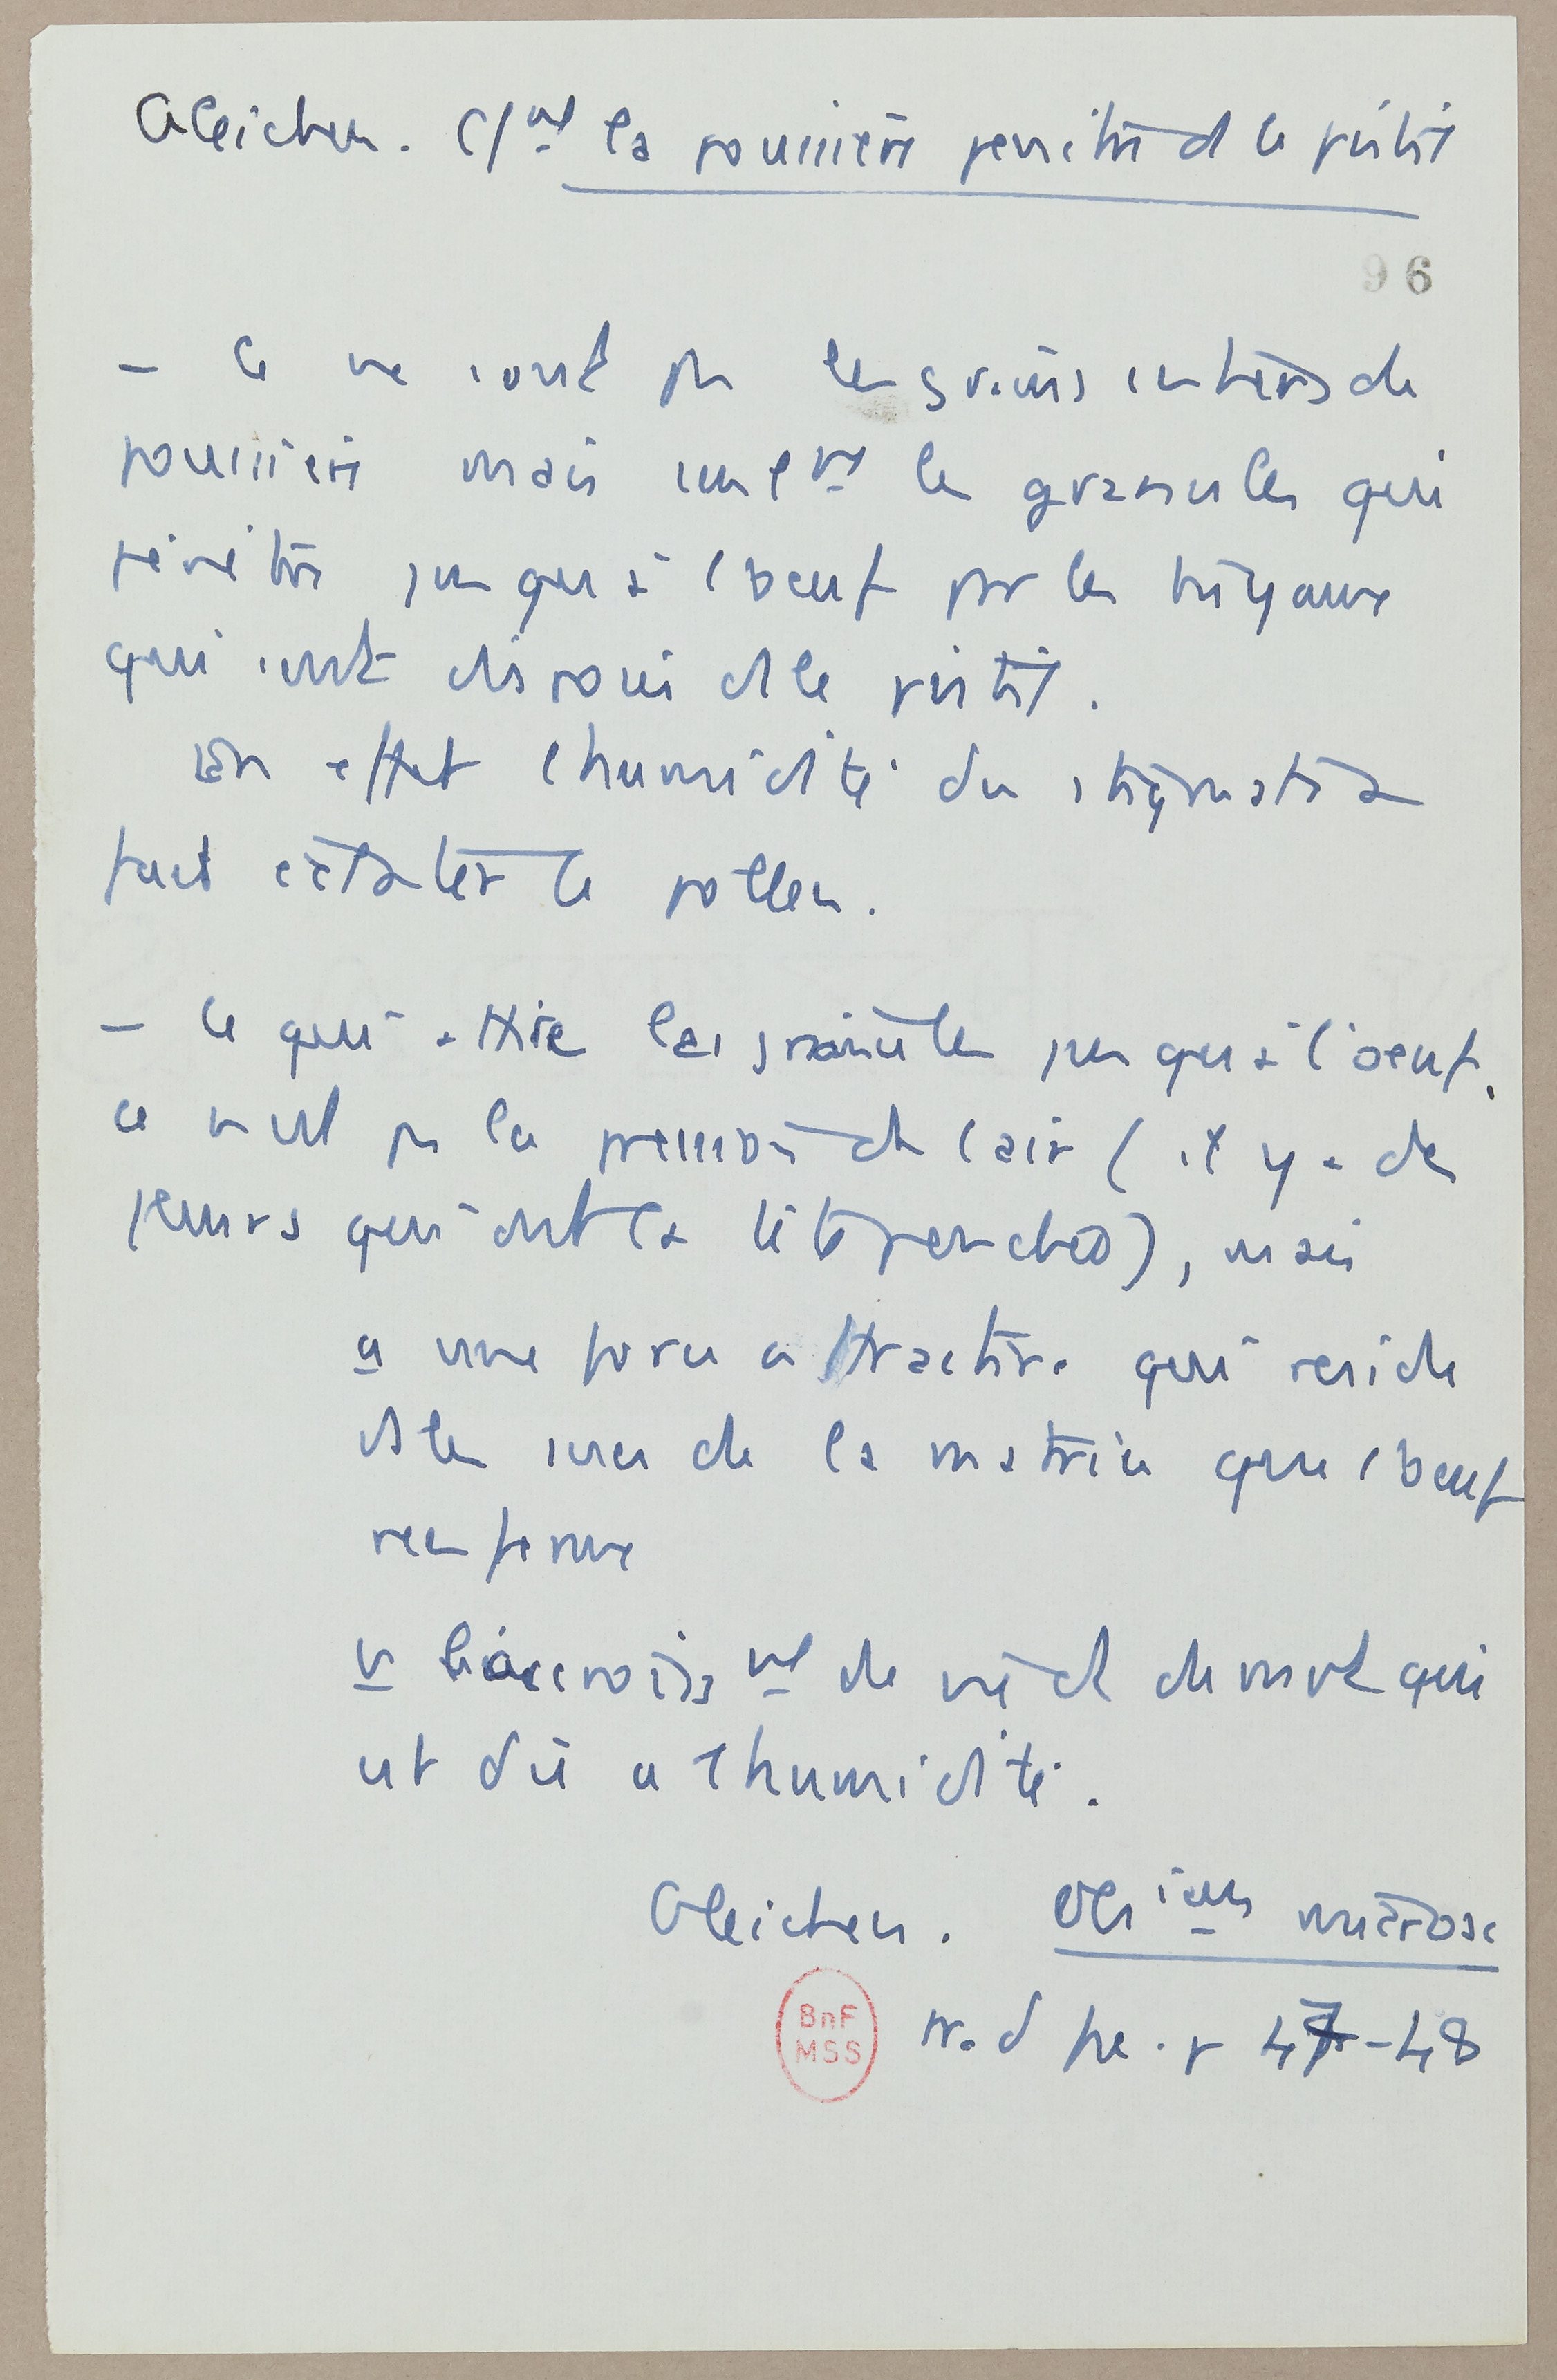 Gleichen. C/mt la poussière pénètre d le pistil
96
- Ce ne sont pas les grains entiers de
poussière mais seulemt les granules qui
pénètre jusqu'à l'oeuf par les tuyaux
qui sont disposés ds le pistil.
En effet l'humidité du stigmate
fait éclater le pollen.
- Ce qui attire les granules jusqu'à l'oeuf,
ce n'est pas la pression de l'air (il y a des
fleurs qui ont la tête penchée), mais
a une force attractive qui réside
ds les sucs de la matrice que l'oeuf
renferme
b l'accroissmt de
qui
est dû a l'humidité.
Gleichen. Obsions microsc
tr. d fse. p 47-48
BnF
MSS